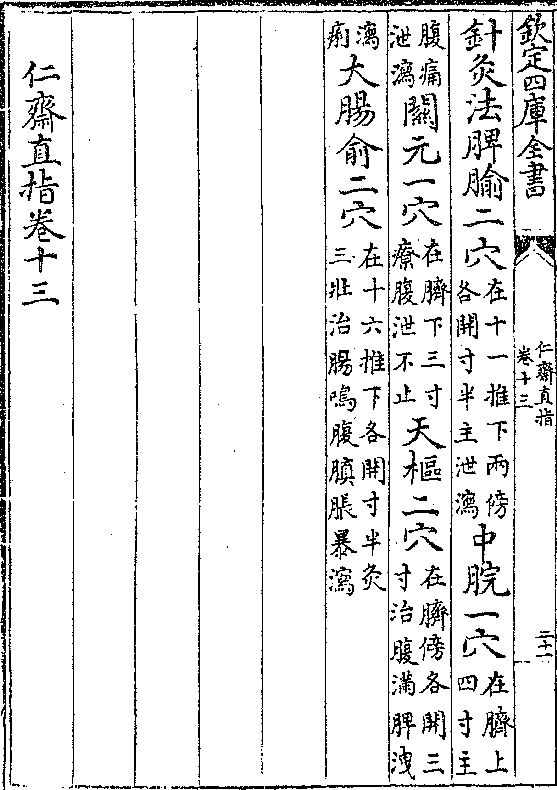 欽定四庫全書
仁齋直指
卷十三
三十一
針灸法脾腧二穴在十一推下兩傍各開寸半主泄瀉中脘一穴在臍上四寸主
腹痛泄瀉關元一穴在臍下三寸療腹泄不止天樞二穴在臍傍各開三寸治腹滿脾洩
瀉痢大腸俞二穴在十六推下各開寸半灸三壯治腸鳴腹䐜脹暴瀉
仁齋直指卷十三